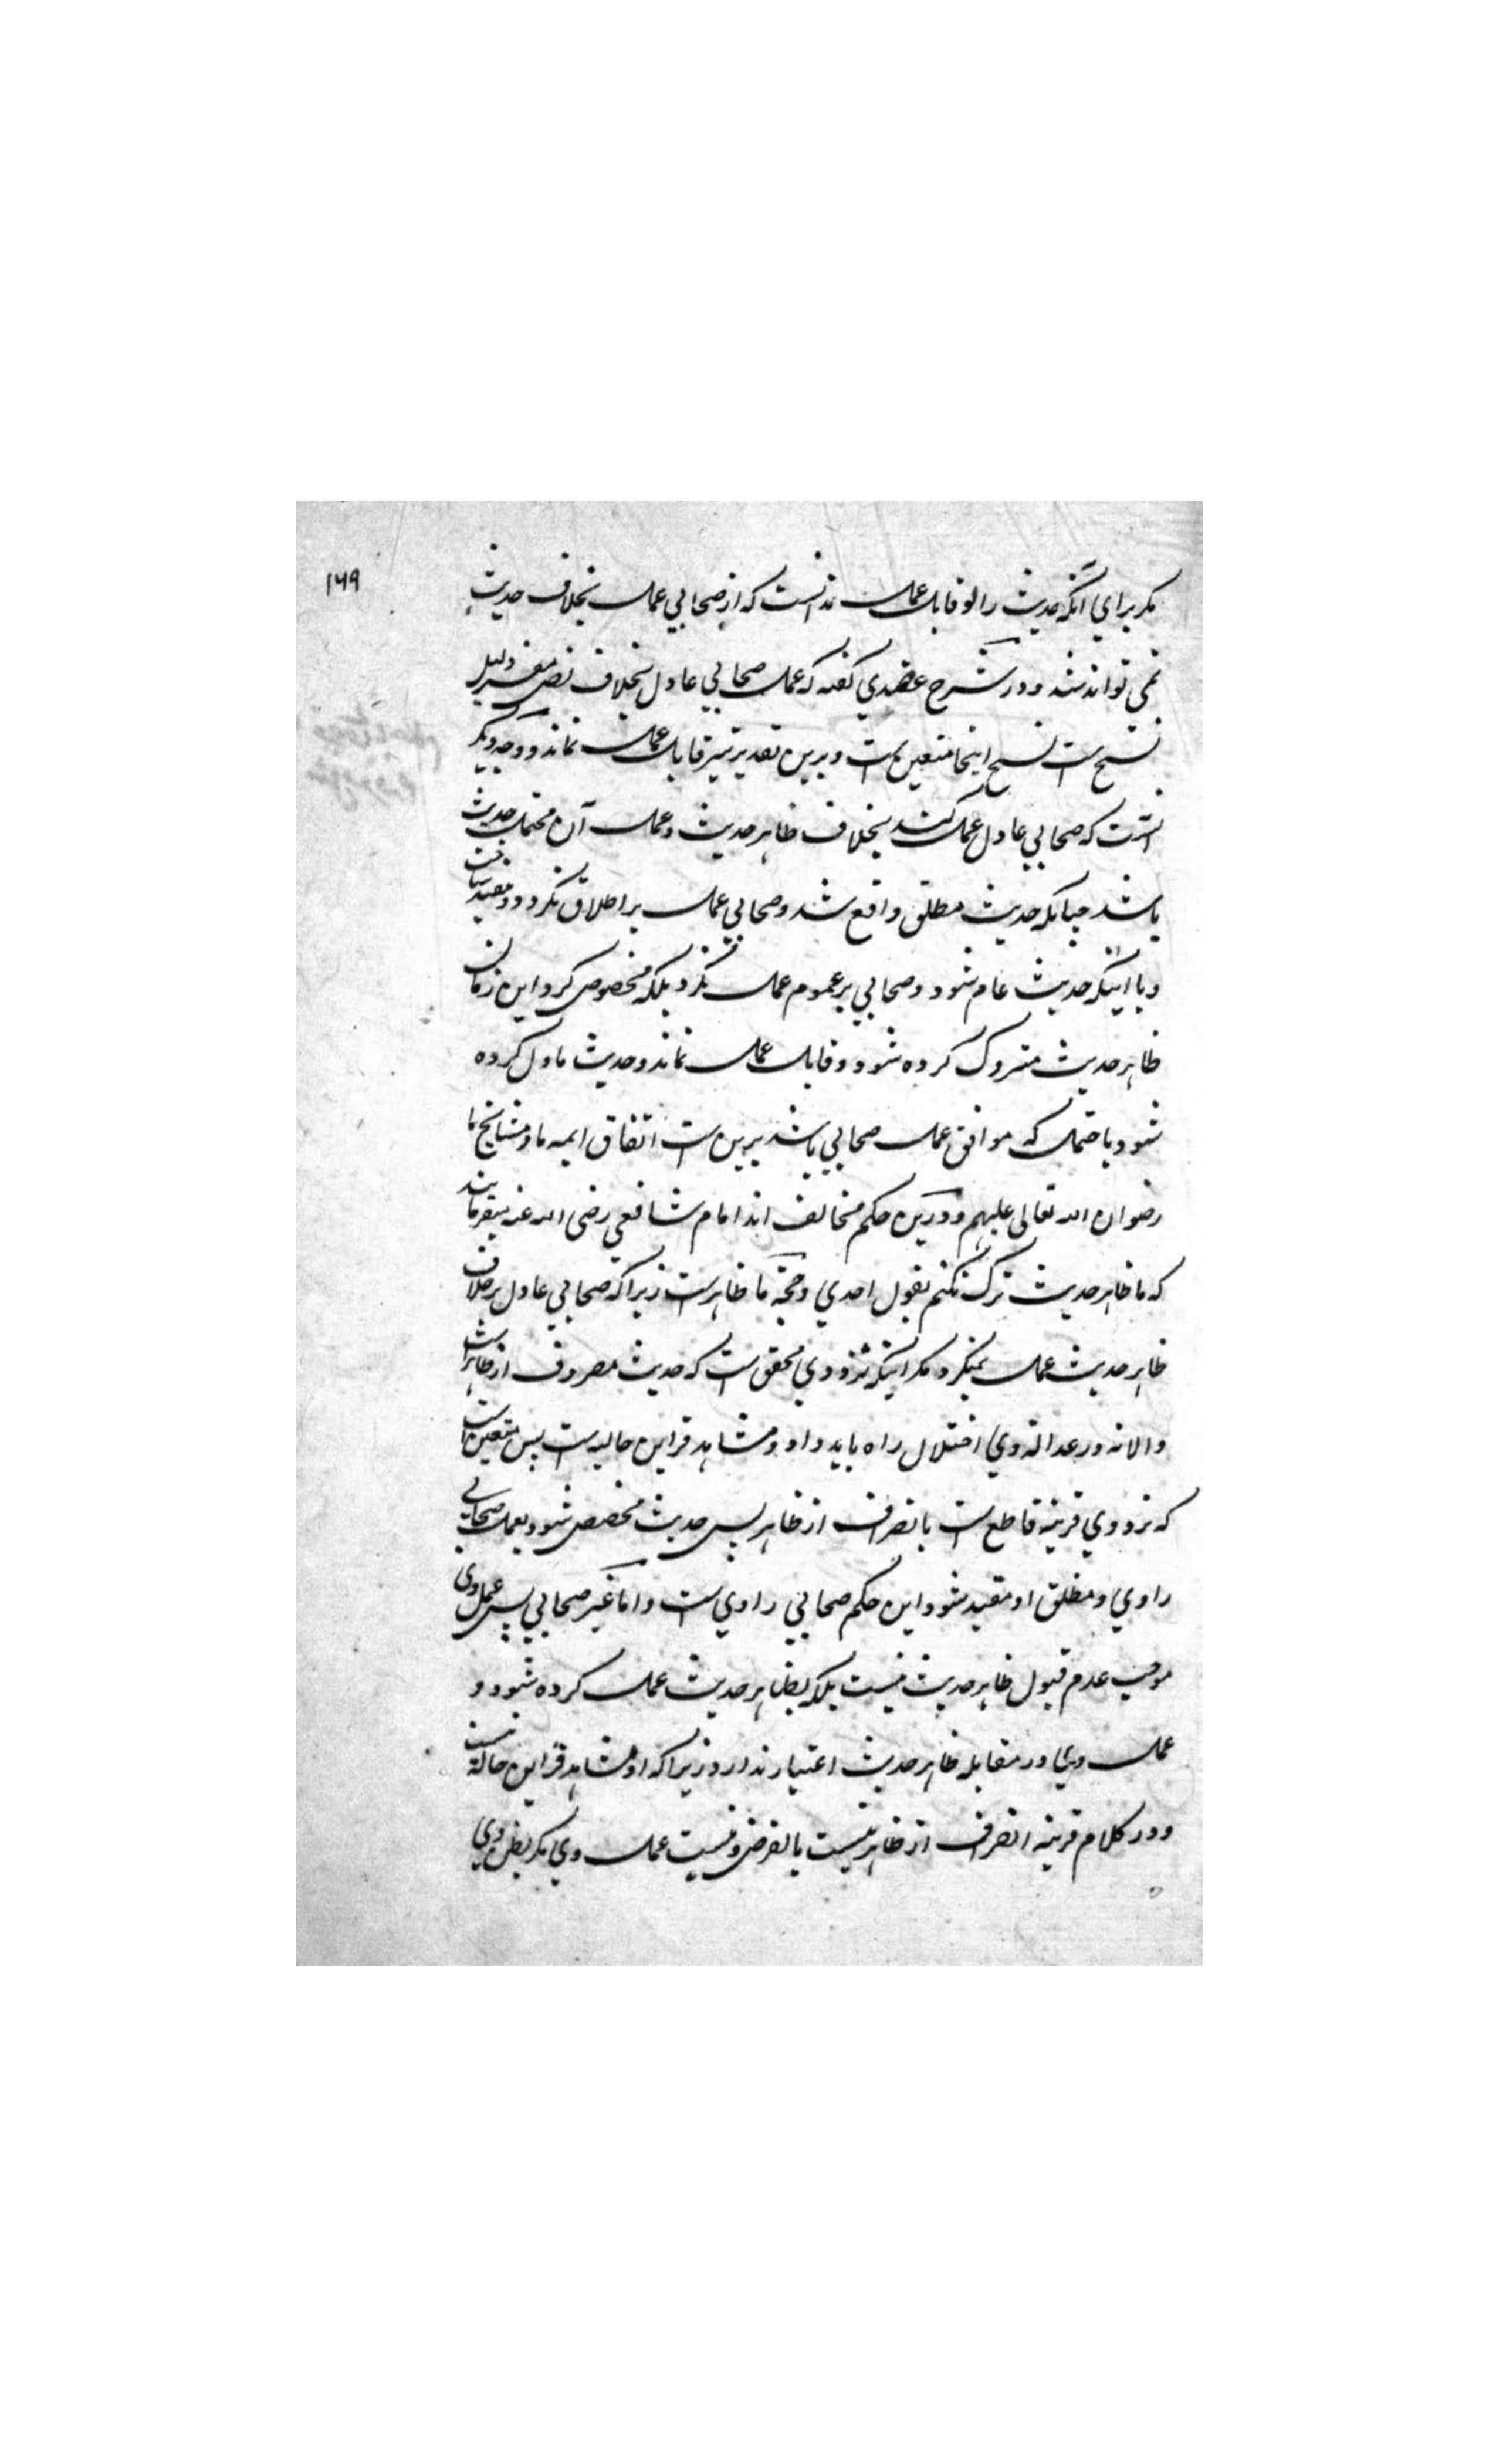 ۱۶۹
مکر برای آنکه حدیث را او قابل عمل ندانست که از صحابی عمل بخلاف حدیث
نمی تواند شد و در شرح عضدی گفته که عمل صحابی عادل بخلاف نص مفسر دلیل
نسخ است نسخ اینجا متعین است و برین تقدیر نیز قابل عمل نماند و وجه دیگر
آنست که صحابی عادل عمل کند بخلاف ظاهر حدیث و عمل آن محتمل حدیث
باشد چنانکه حدیث مطلق واقع شد و صحابی عمل بر اطلاق نکرد و مقید ساخت
و یا اینکه حدیث عام شود و صحابی بر عموم عمل نکرد بلکه مخصوص کرد این زمان
ظاهر حدیث متروک کرده شود و قابل عمل نماند و حدیث ماول کرده
شود بامحتمل که موافق عمل صحابی باشد برین است اتفاق ایمه ما و مشایخ ما
رضوان الله تعالی علیهم و درین حکم مخالف اند امام شافعی رضی الله عنه میفرمایند
که ما ظاهر حدیث ترک نکنم بقول احدی و حجة ما ظاهرست زیرا که صحابی عادل برخلاف
ظاهر حدیث عمل نمیکرد مکر اینکه نزد وی محقق است که حدیث مصروف از ظاهر است
والا نه در عدالة وی اختلال راه یابد و او مشاهد قراین حالیه است پس متعین است
که نزد وی قرینه قاطع است بانصراف از ظاهر پس حدیث مخصص شود بعمل صحابی
راوی و مطلق او مقید شود این حکم صحابی راوی است و اما غیر صحابی پس عمل وی
موجب عدم قبول ظاهر حدیث نیست بلکه بظاهر حدیث عمل کرده شود و
عمل وی در مقابله ظاهر حدیث اعتبار ندارد زیرا که او مشاهد قراین حالة نیست
و در کلام قرینه انصراف از ظاهر نیست بالفرض و نیست عمل وی مکر بظن وی